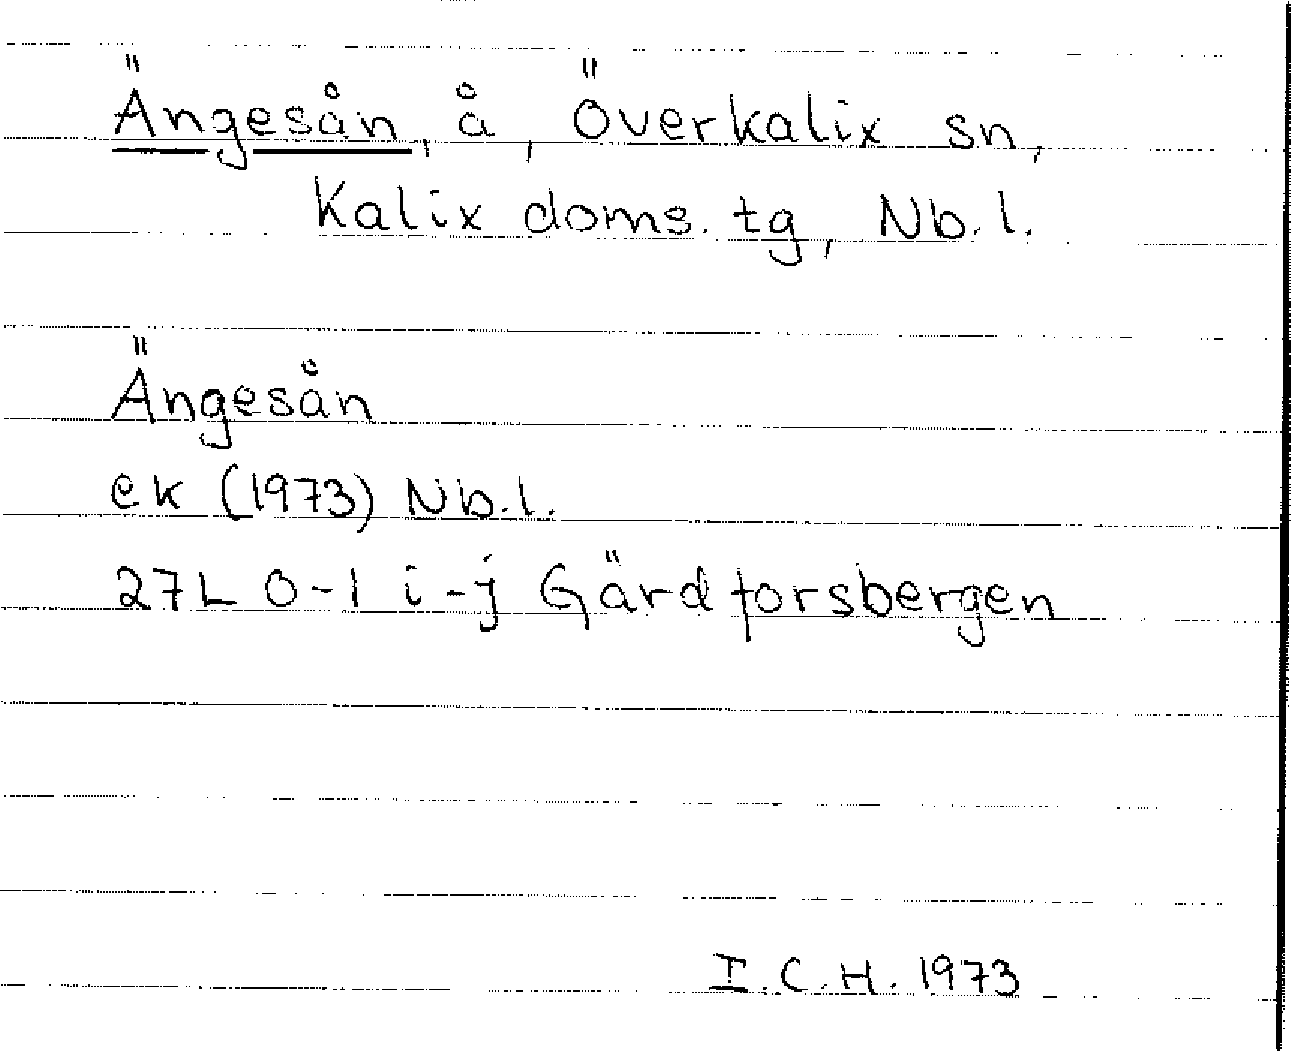 Ängesån, å, Överkalix sn,
Kalix doms. tg, Nb.l.
Ängesån
ek (1973) Nb.l.
27L 0-1 i-j Gärdforsbergen
I.C.H. 1973